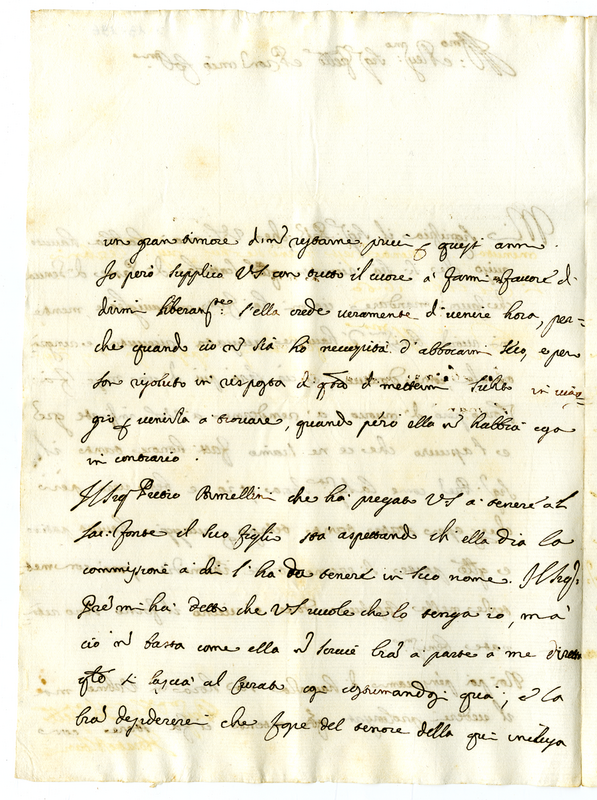 un gran timore di nõ restarne privi p questi anni.
Io però supplico VS con tutto il cuore à farmi favore di
dirmi liberam.te s'ella crede veramente di venire hora, per-
che quando ciò nõ sia hò necessità d'abboccarmi seco, e però
son risoluto in risposta di q.ta di mettermi subito in viag-
gio p venirla à trovare, quando però ella nõ habbia cosa
in contrario.
Il Sig.r Pietro che hà pregato VS à tenere al
Sac: fonte il suo figlio stà aspettando ch'ella dia la
commissione à chi l'hà da tenere in suo nome. Il Sig.r
Pre mi hà detto che VS vuole che lo tenga io, mà
ciò nõ basta come ella nõ scrive lrã à parte à me
q.to si lascia al Curato cosi costumandosi quà; e la
lrã desidererei che fosse del tenore della qui inclusa